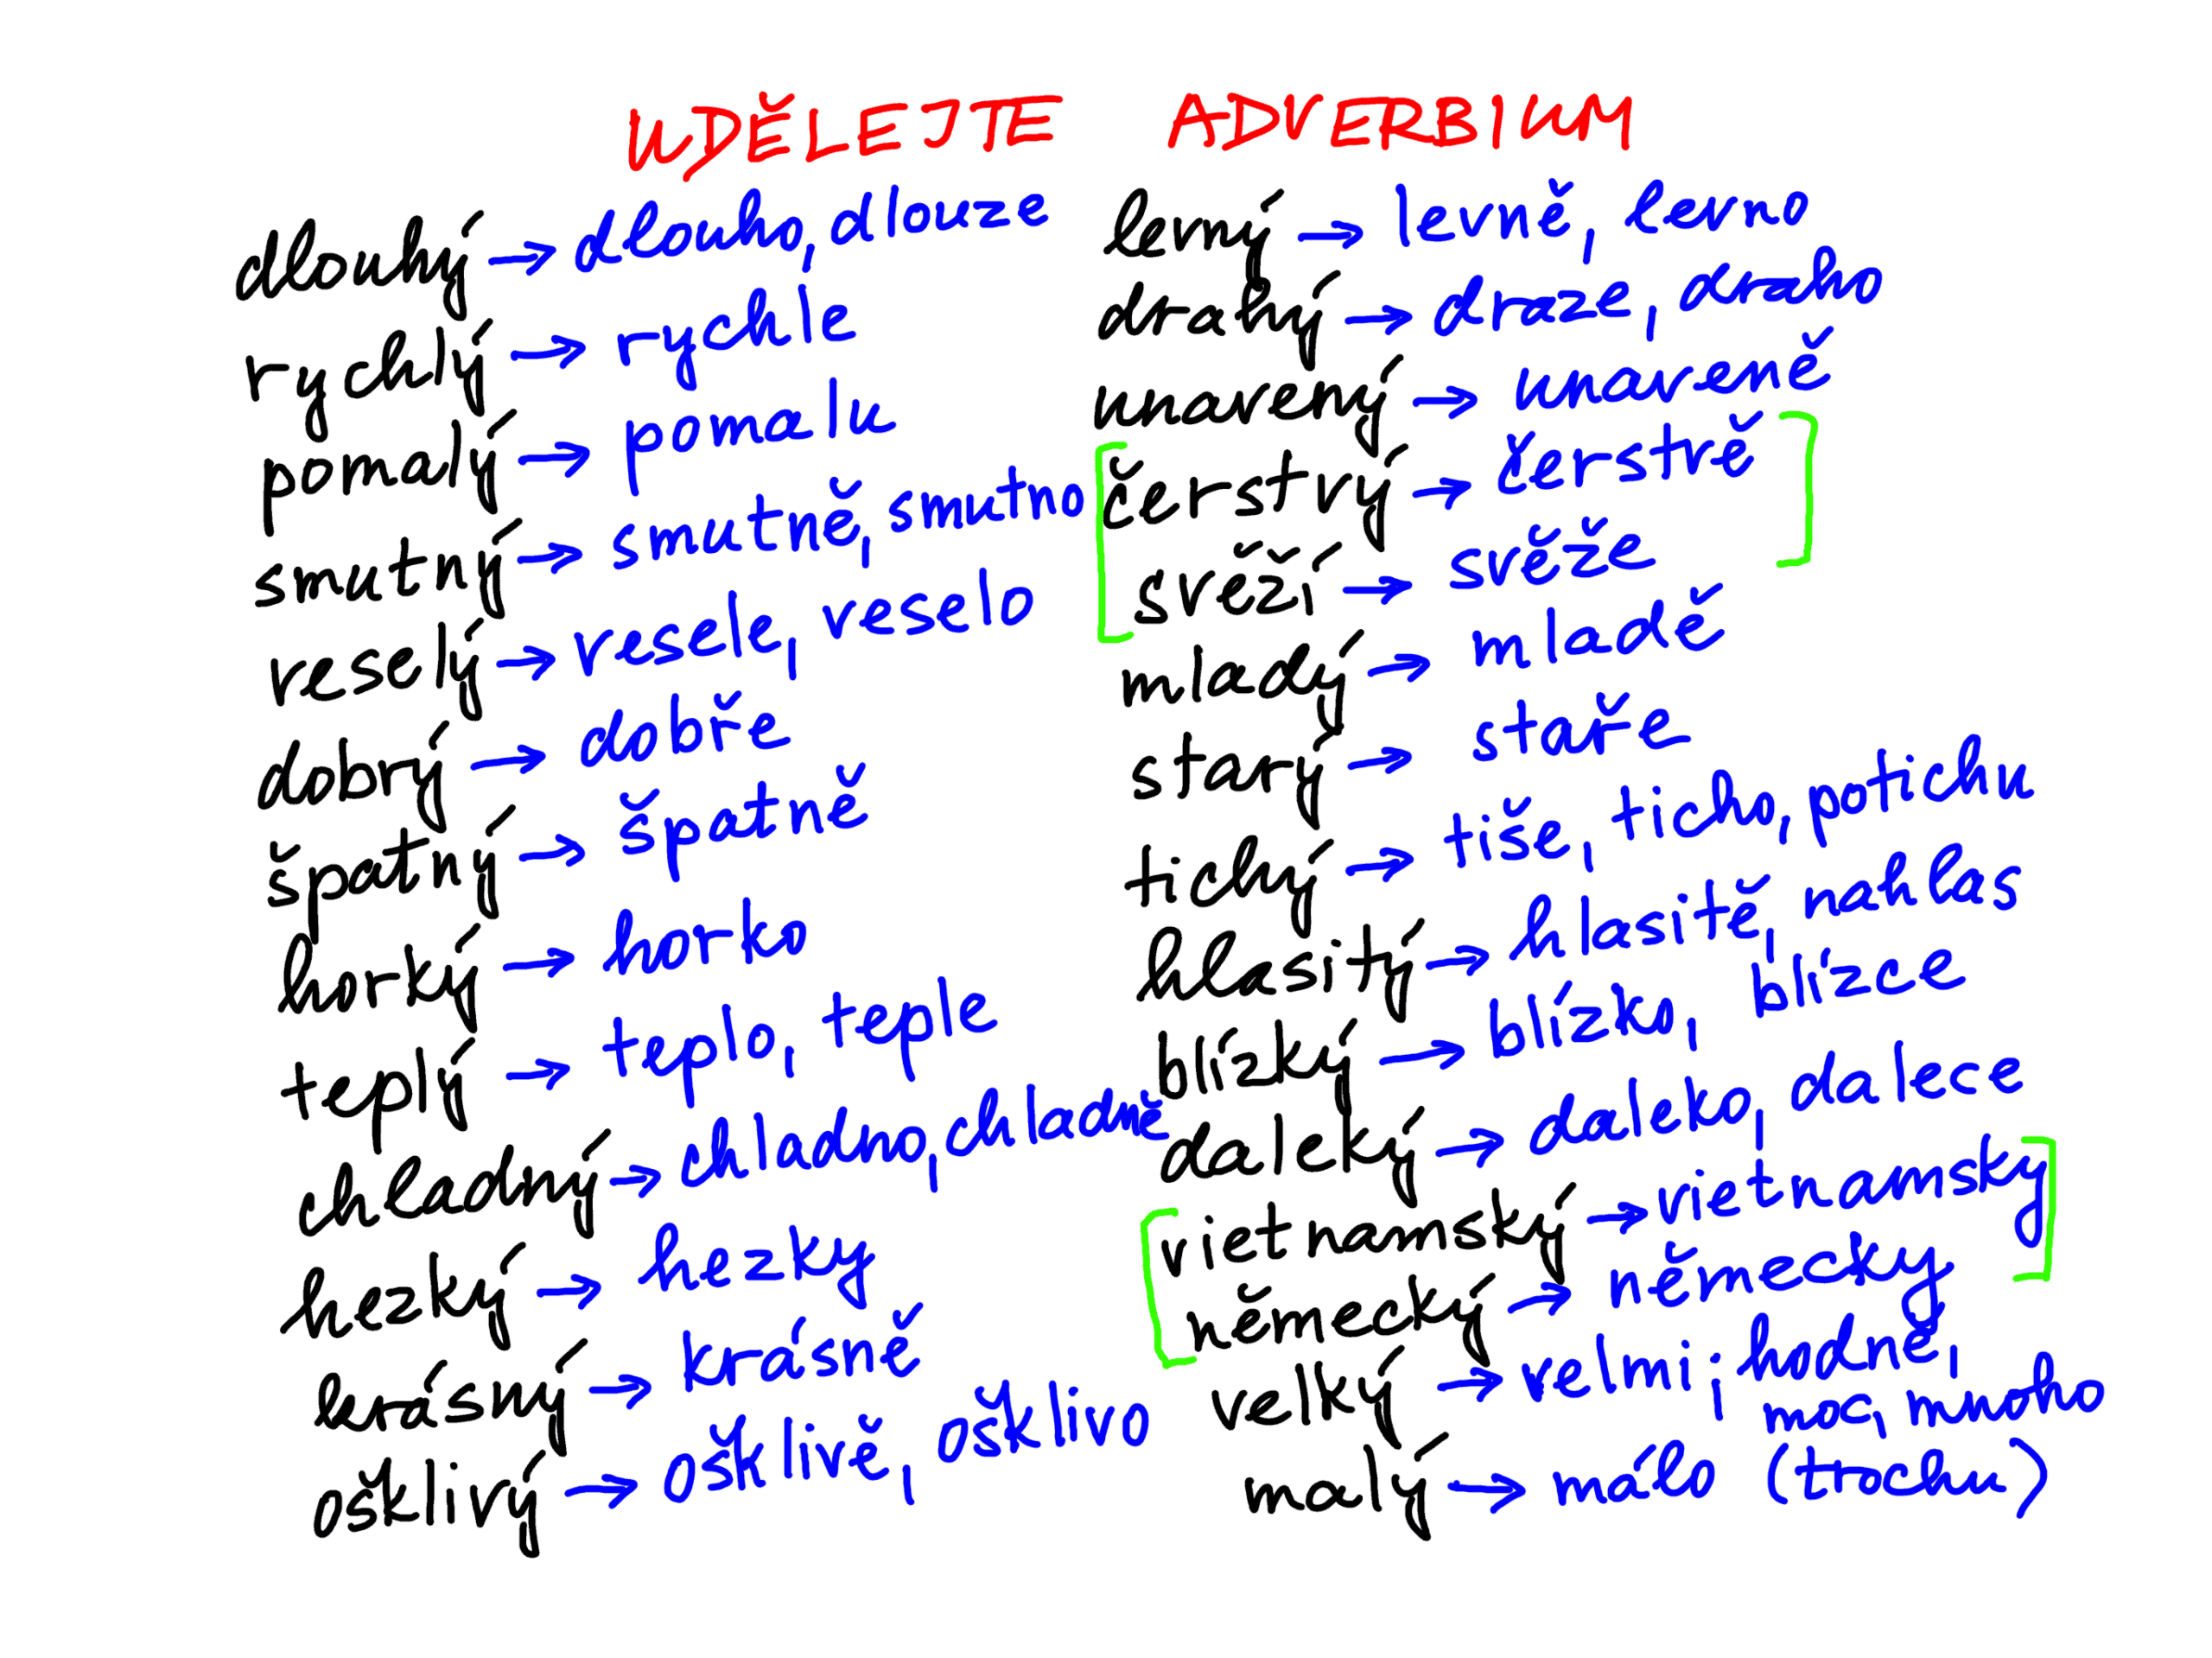 UDĚLEJTE ADVERBIUM
dlouhý → dlouho, dlouze
rychlý → rychle
pomalý → pomalu
smutný → smutně, smutno
veselý → vesele, veselo
dobrý → dobře
špatný → špatně
horký → horko
teplý → teplo, teple
chladný → chladno, chladně
hezký → hezky
krásný → krásně
ošklivý → ošklivě, ošklivo
levný → levně, levno
drahý → draze, draho
unavený → unaveně
čerstvý → čerstvě
svěží → svěže
mladý → mladě
starý → staře
tichý → tiše, ticho, potichu
hlasitý → hlasitě, nahlas
blízký → blízko, blízce
daleký → daleko, dalece
vietnamský → vietnamsky
německý → německy
velký → velmi; hodně,
moc, mnoho
malý → málo (trochu)